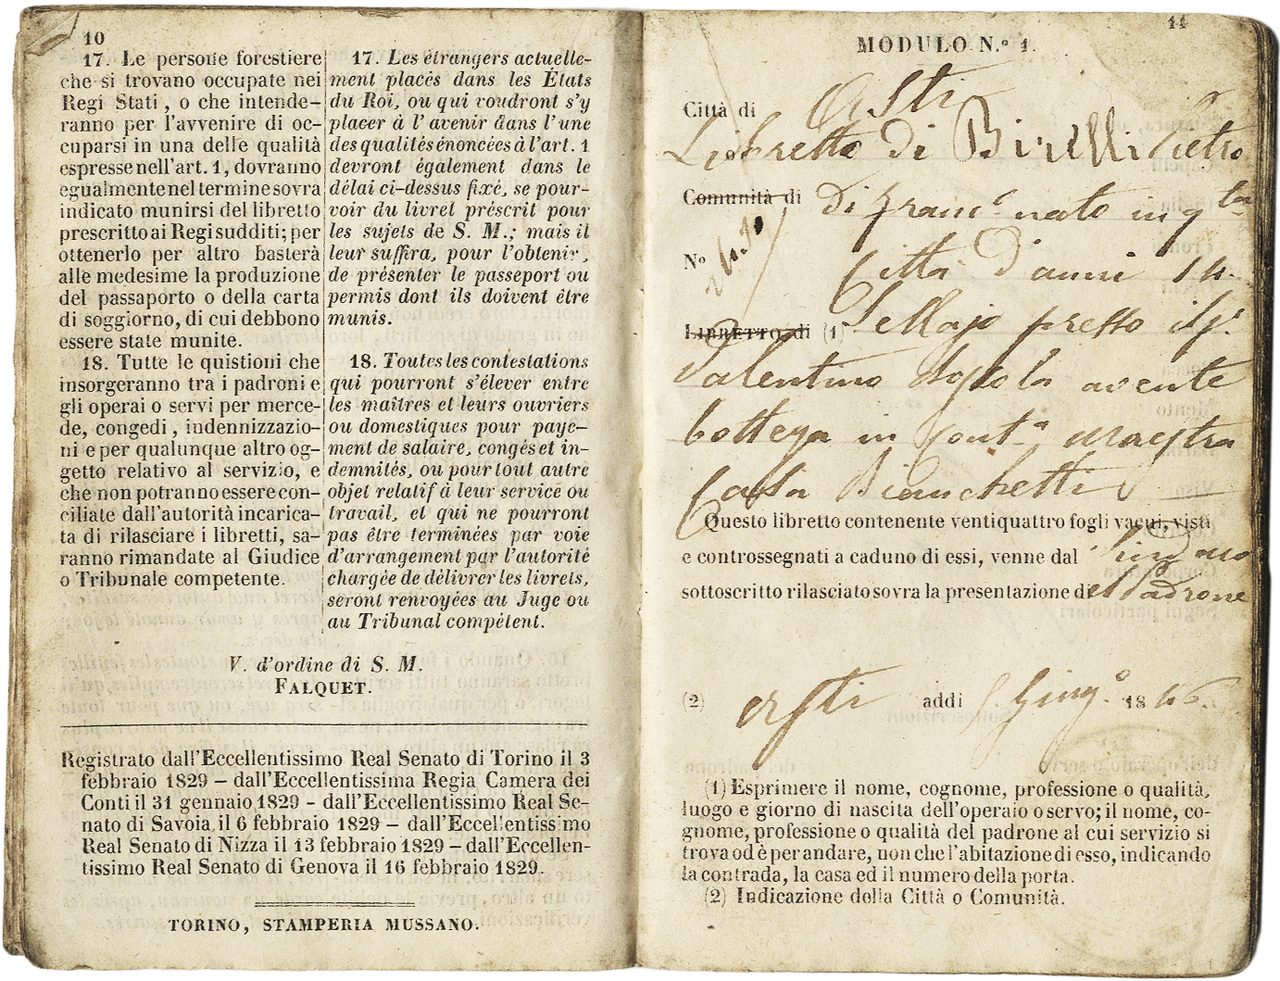 10
17. Le persone forestiere
che si trovano occupate nei
Regi Stati, o che intende-
ranno per l'avvenire di oc-
cuparsi in una delle qualità
espresse nell'art. 1, dovranno
egualmente nel termine sovra
indicato munirsi del libretto
prescritto ai Regi sudditi; per
ottenerlo per altro basterà
alle medesime la produzione
del passaporto o della carta
di soggiorno, di cui debbono
essere state munite.
18. Tutte le quistioni che
insorgeranno tra i padroni e
gli operai o servi per merce-
de, congedi, indennizzazio-
ni e per qualunque altro og-
getto relativo al servizio, e
che non potranno essere con-
ciliate dall'autorità incarica-
ta di rilasciare i libretti, sa-
ranno rimandate al Giudice
o Tribunale competente.
17. Les étrangers actuelle-
ment placés dans les États
du Roi, ou qui voudront s'y
placer à l'avenir dans l'une
des qualités énoncées à l'art. 1
devront également dans le
délai ci-dessus fixé, se pour-
voir du livret préscrit pour
les sujets de S. M.; mais il
leur suffira, pour l'obtenir,
de présenter le passeport ou
permis dont ils doivent être
munis.
18. Toutes les contestations
qui pourront s'élever entre
les maîtres et leurs ouvriers
ou domestiques pour paye-
ment de salaire, congés et in-
demnités, ou pour tout autre
objet relatif à leur service ou
travail, et qui ne pourront
pas être terminées par voie
d'arrangement par l'autorité
chargée de délivrer les livrets,
seront renvoyées au Juge ou
au Tribunal compétent.
V. d'ordine di S. M.
FALQUET.
Registrato dall'Eccellentissimo Real Senato di Torino il 3
febbraio 1829 – dall'Eccellentissima Regia Camera dei
Conti il 31 gennaio 1829 – dall'Eccellentissimo Real Se-
nato di Savoia il 6 febbraio 1829 – dall'Eccellentissimo
Real Senato di Nizza il 13 febbraio 1829 – dall'Eccellen-
tissimo Real Senato di Genova il 16 febbraio 1829.
TORINO, STAMPERIA MUSSANO.
11
MODULO N.º 1.
Città di Asti
Libretto di Birelli Pietro
Comunità di di Franc.º nato in q.ta
Nº Città d'anni 14.
LIBRETTO di (1) Sellajo presso il
Valentino avente
bottega in Cont.a maestra
Casa Bianchetti
Questo libretto contenente ventiquattro fogli vacui, visti
e controssegnati a caduno di essi, venne dal Sindaco
sottoscritto rilasciato sovra la presentazione del Padrone
(2) Asti addì Giug.º 1846.
(1) Esprimere il nome, cognome, professione o qualità,
luogo e giorno di nascita dell'operaio o servo; il nome, co-
gnome, professione o qualità del padrone al cui servizio si
trova od è per andare, non che l'abitazione di esso, indicando
la contrada, la casa ed il numero della porta.
(2) Indicazione della Città o Comunità.